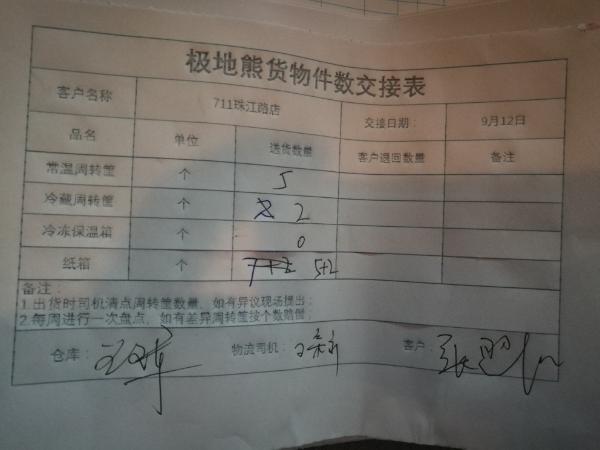 极地熊货物件数交接表
客户名称 711珠江路店 交接日期： 9月12日
品名 单位 送货数量 客户退回数量 备注
常温周转筐 个 5
冷藏周转筐 个 2
冷冻保温箱 个 0
纸箱 个 5+2
备注：
1.出货时司机清点周转筐数量，如有异议现场提出；
2.每周进行一次盘点，如有差异周转筐按个数赔偿；
仓库： 物流司机： 客户：